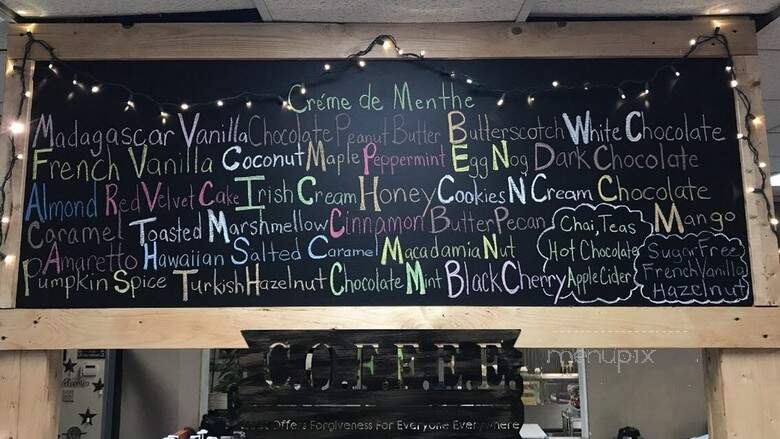 Créme de Menthe
Madagascar Vanilla Chocolate Peanut Butter Butterscotch White Chocolate
French Vanilla Coconut Maple Peppermint Egg Nog Dark Chocolate
Almond Red Velvet Cake Irish Cream Honey Cookies N Cream Chocolate
Caramel Toasted Marshmellow Cinnamon Butter Pecan Mango
Amaretto Hawaiian Salted Caramel Macadamia Nut
Pumpkin Spice Turkish Hazelnut Chocolate Mint Black Cherry
Chai, Teas
Hot Chocolate
Apple Cider
Sugar Free
French Vanilla
Hazelnut
C.O.F.F.E.E.
Offers Forgiveness For Everyone Everywhere
menupix